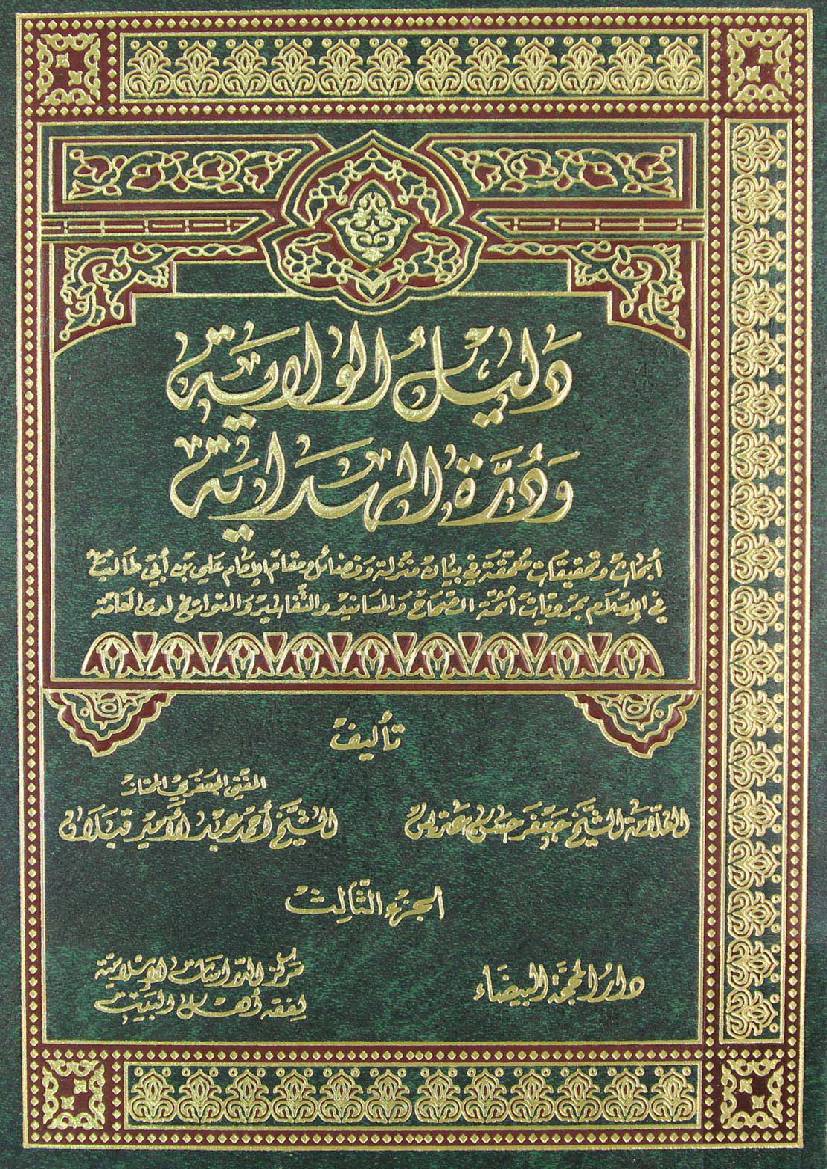 دَليلُ الولاية
وَدُرَّة الهِدَاية
أبحاث وتحقيقات محققة في بيان منزلة وفضائل مقام الإمام علي بن أبي طالب
في الإسلام بمرويات أئمة الصحاح والمسانيد والتفاسير والتواريخ لدى العامة
تأليف
العلامة الشيخ جعفر حسن عتريسي
المفتي الجعفري الممتاز
الشيخ أحمد عبد الأمير قبلان
الجزء الثالث
دار المحجة البيضاء
مركز الدراسات الإسلامية
لفقه أهل البيت